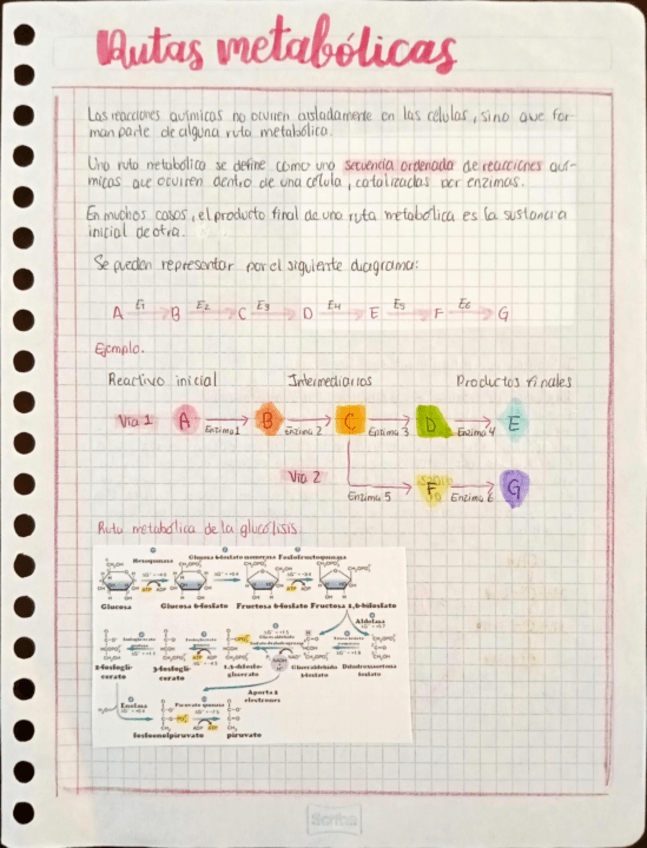 Rutas metabólicas
Las reacciones químicas no ocurren aisladamente en las células, sino que for-
man parte de alguna ruta metabólica.
Una ruta metabólica se define como una secuencia ordenada de reacciones quí-
micas que ocurren dentro de una célula, catalizadas por enzimas.
En muchos casos, el producto final de una ruta metabólica es la sustancia
inicial de otra.
Se pueden representar por el siguiente diagrama:
A E1 B E2 C E3 D E4 E E5 F E6 G
Ejemplo.
Reactivo inicial Intermediarios Productos finales
Vía 1 A Enzima 1 B Enzima 2 C Enzima 3 D Enzima 4 E
Vía 2 Enzima 5 F Enzima 6 G
Ruta metabólica de la glucólisis
Hexoquinasa Glucosa 6-fosfato isomerasa Fosfofructoquinasa
ATP ADP ATP ADP
Glucosa Glucosa 6-fosfato Fructosa 6-fosfato Fructosa 1,6-bifosfato
Aldolasa
2-fosfogli-
cerato
3-fosfogli-
cerato
1,3-difosfo-
glicerato
Gliceraldehído
3-fosfato
Dihidroxiacetona
fosfato
NADH
NAD+
Aporta 2
electrones
Enolasa Piruvato quinasa
ADP ATP
fosfoenolpiruvato piruvato
Scribe